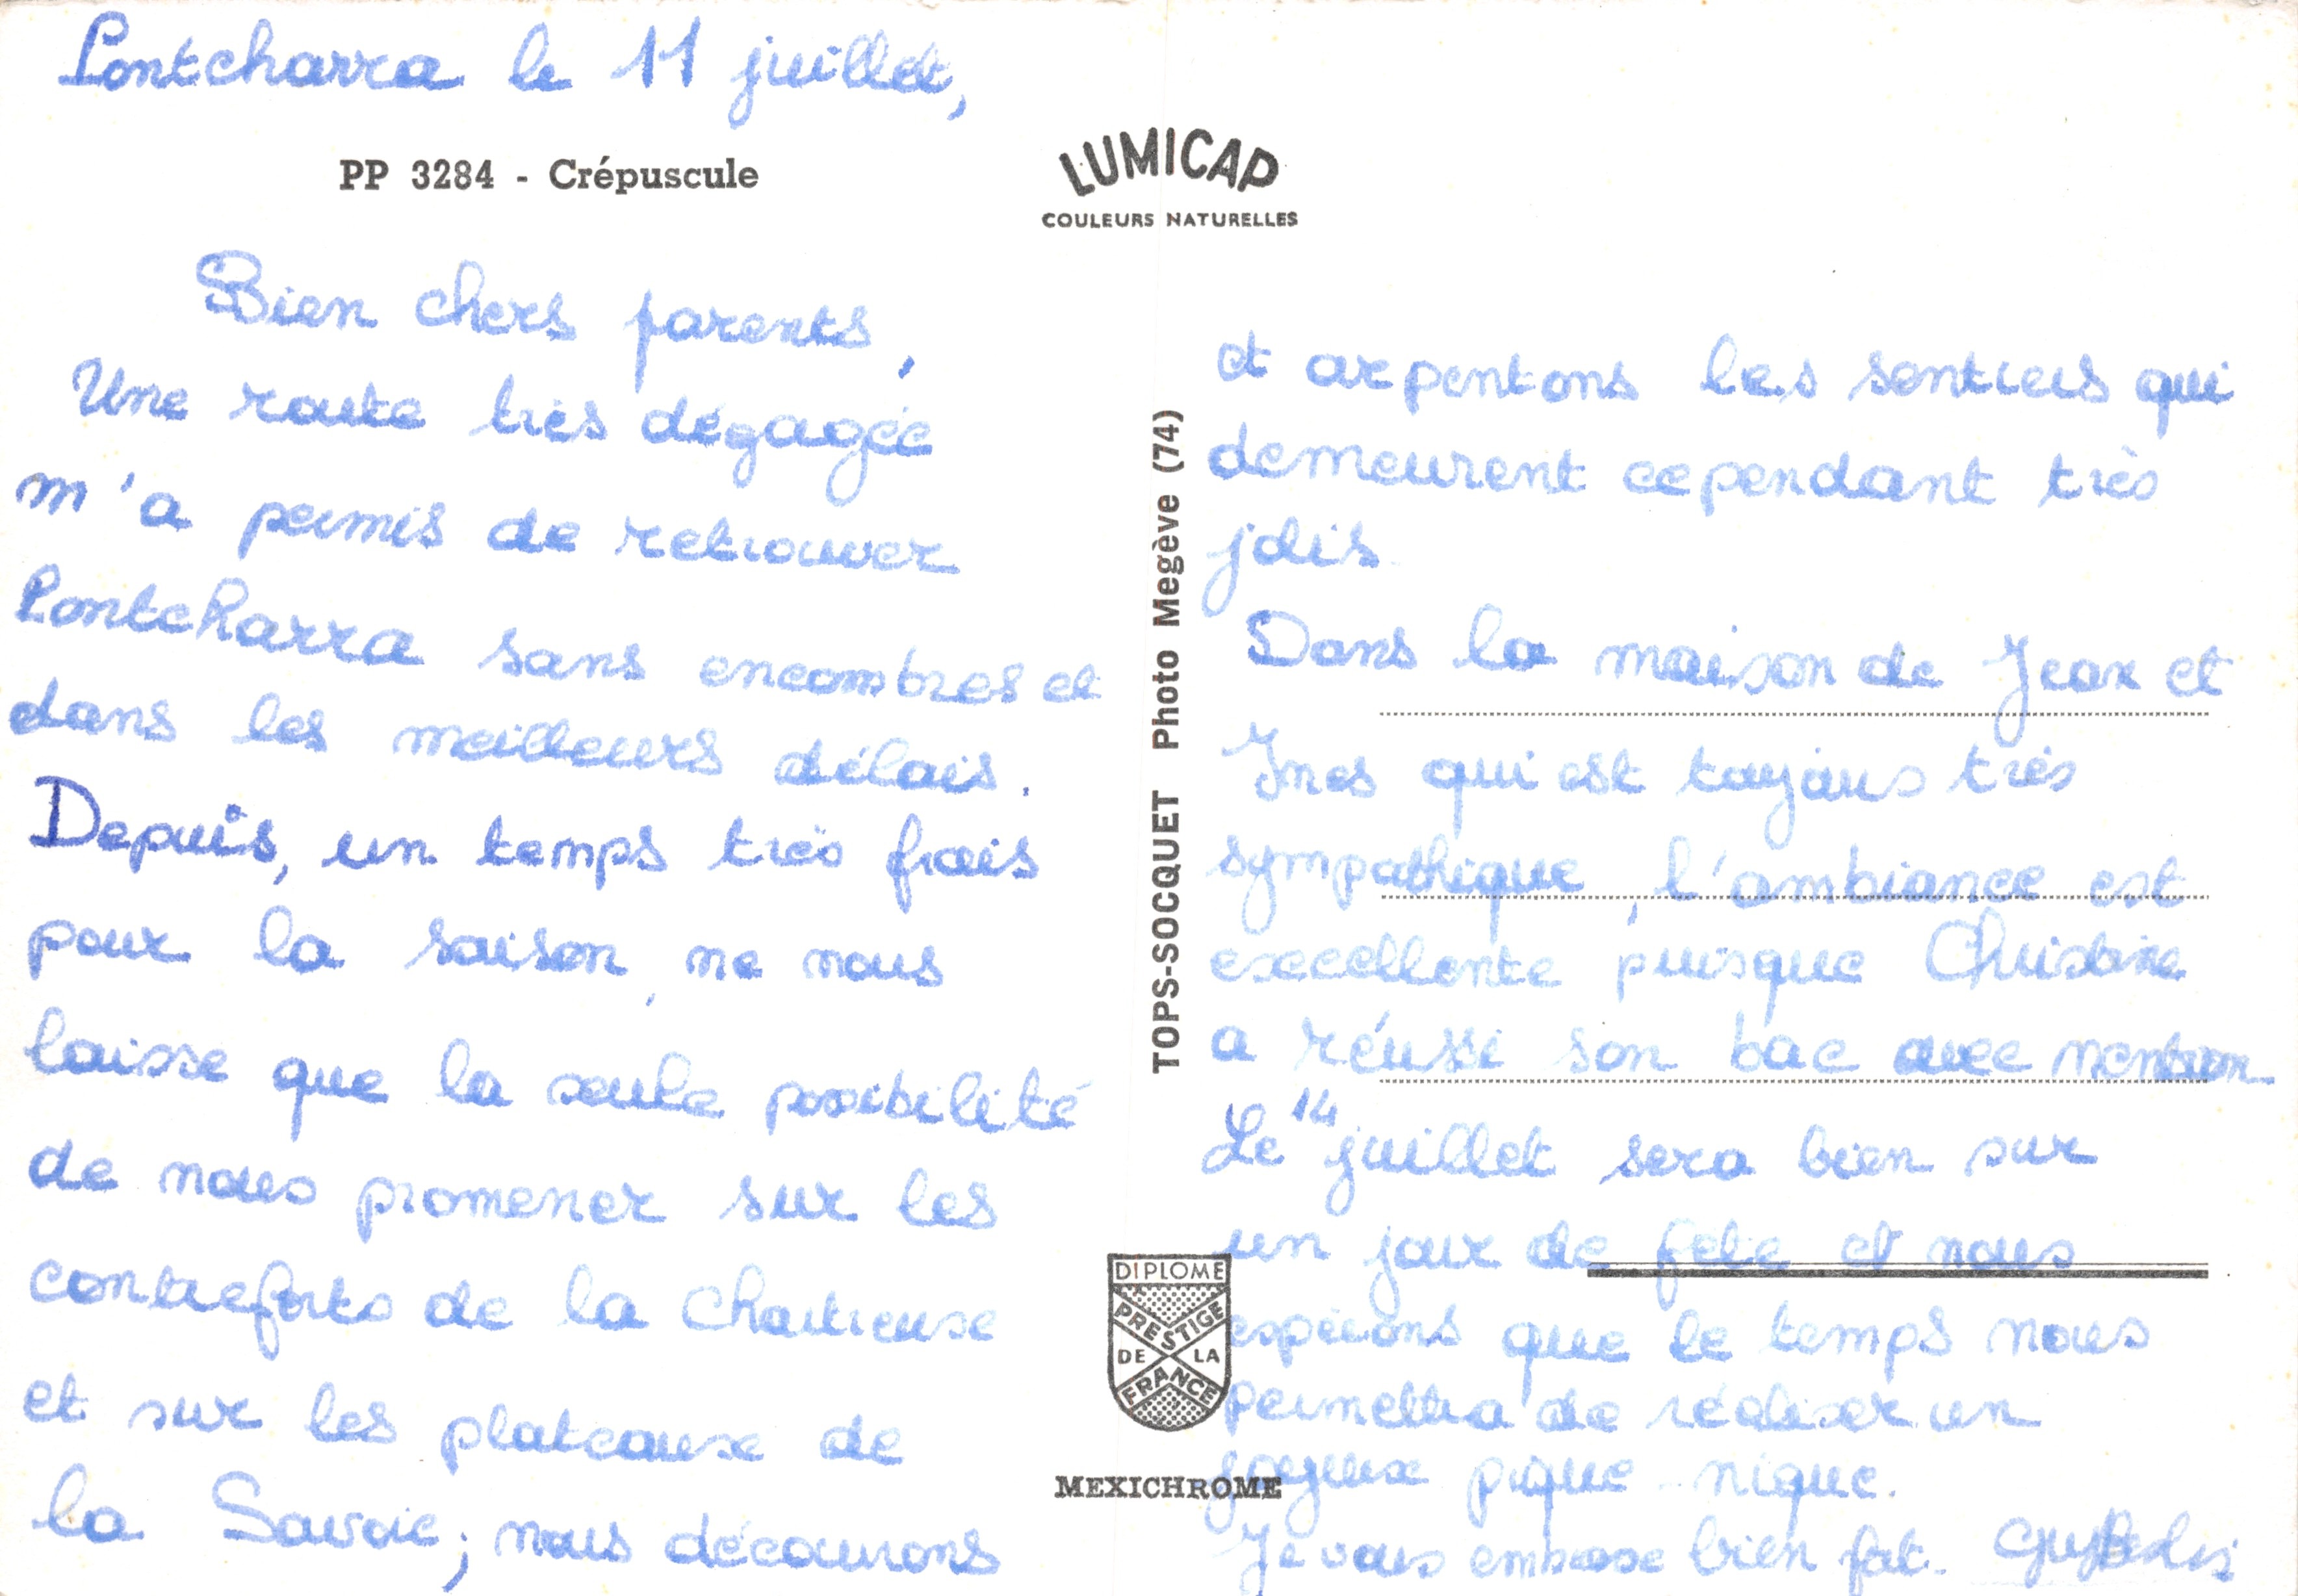 Pontcharra le 11 juillet,
PP 3284 - Crépuscule
LUMICAP
COULEURS NATURELLES
Bien chers parents,
Une route très dégagée
m'a permis de retrouver
Pontcharra sans encombres et
dans les meilleurs délais.
Depuis, un temps très frais
pour la saison, ne nous
laisse que la seule possibilité
de nous promener sur les
contreforts de la Chartreuse
et sur les plateaux de
la Savoie; nous découvrons
TOPS-SOCQUET Photo Megève (74)
DIPLOME
PRESTIGE
DE LA
FRANCE
MEXICHROME
et arpentons les sentiers qui
demeurent cependant très
jolis.
Dans la maison de Jean et
Ines qui est toujours très
sympathique, l'ambiance est
excellente puisque Christine
a réussi son bac avec mention
Le 14 juillet sera bien sur
un jour de fête et nous
espérons que le temps nous
permettra de réaliser un
joyeux pique-nique.
Je vous embrasse bien fort.